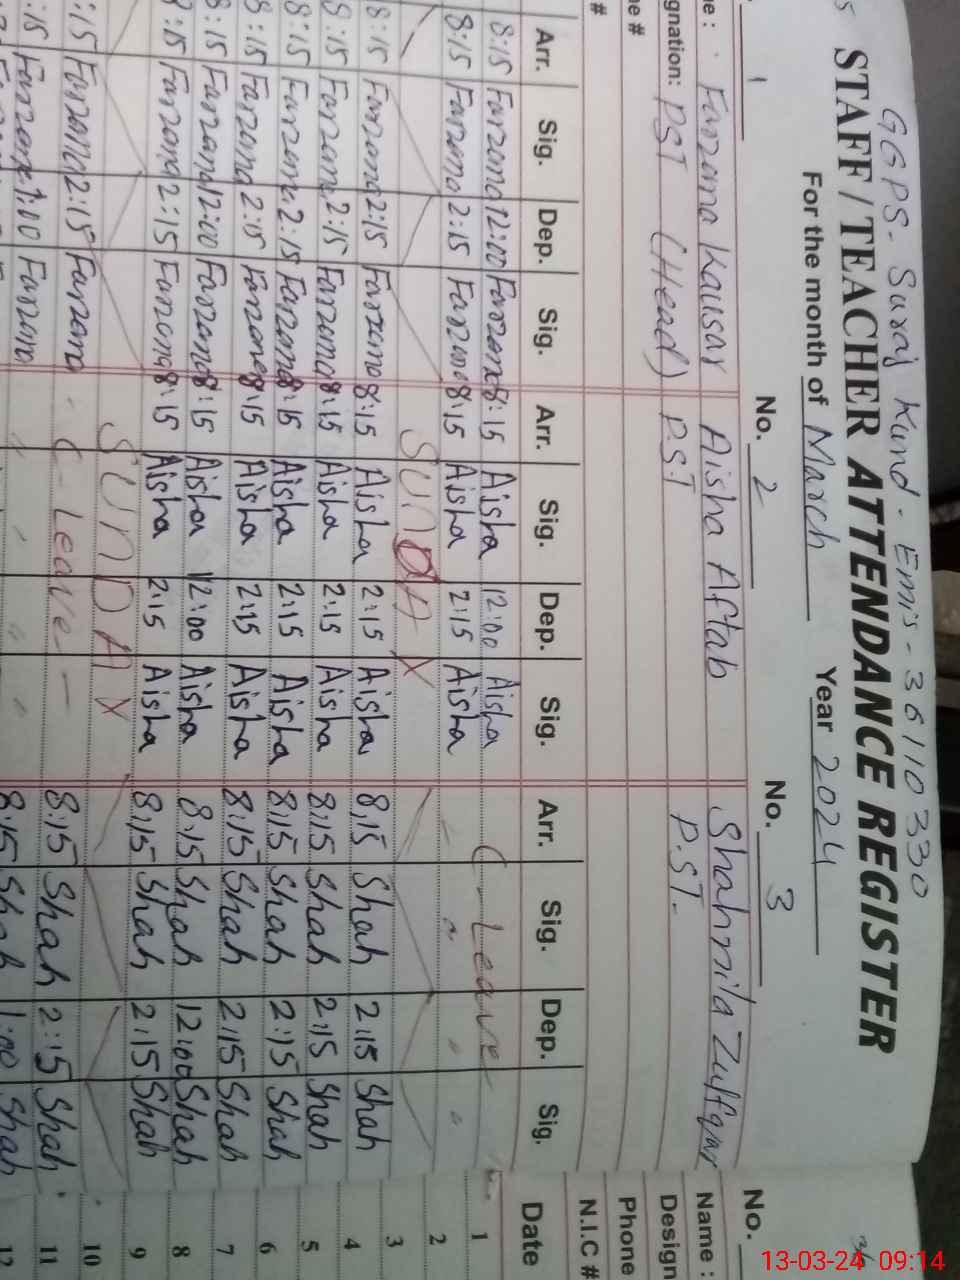 GGPS- Suraj Kund. Emis- 36110330
STAFF/TEACHER ATTENDANCE REGISTER
For the month of March Year 2024
1 No. 2 No. 3 No.
me : Farzana Kausar Aisha Aftab Shahnila Zulfqar Name :
gnation: PST (Head) P.S.T P.ST. Design
ne # Phone
# N.I.C #
Arr. Sig. Dep. Sig. Arr. Sig. Dep. Sig. Arr. Sig. Dep. Sig. Date
8:15 Farzana 12:00 Farzana 8:15 Aisha 12:00 Aisha (- Leave 1
8:15 Farzana 2:15 Farzana 8:15 Aisha 2:15 Aisha " " " 2
SUNDAY 3
8:15 Farzana 2:15 Farzana 8:15 Aisha 2:15 Aisha 8:15 Shah 2:15 Shah 4
8:15 Farzana 2:15 Farzana 8:15 Aisha 2:15 Aisha 8:15 Shah 2:15 Shah 5
8:15 Farzana 2:15 Farzana 8:15 Aisha 2:15 Aisha 8:15 Shah 2:15 Shah 6
8:15 Farzana 2:15 Farzana 8:15 Aisha 2:15 Aisha 8:15 Shah 2:15 Shah 7
8:15 Farzana 12:00 Farzana 8:15 Aisha 12:00 Aisha 8:15 Shah 12:00 Shah 8
8:15 Farzana 2:15 Farzana 8:15 Aisha 2:15 Aisha 8:15 Shah 2:15 Shah 9
SUNDAY 10
:15 Farzana 2:15 Farzana (- Leave - 8:15 Shah 2:15 Shah 11
:15 Farzana 1:00 Farzana " " " 8:15 Shah 1:00 Shah 12
13-03-24 09:14